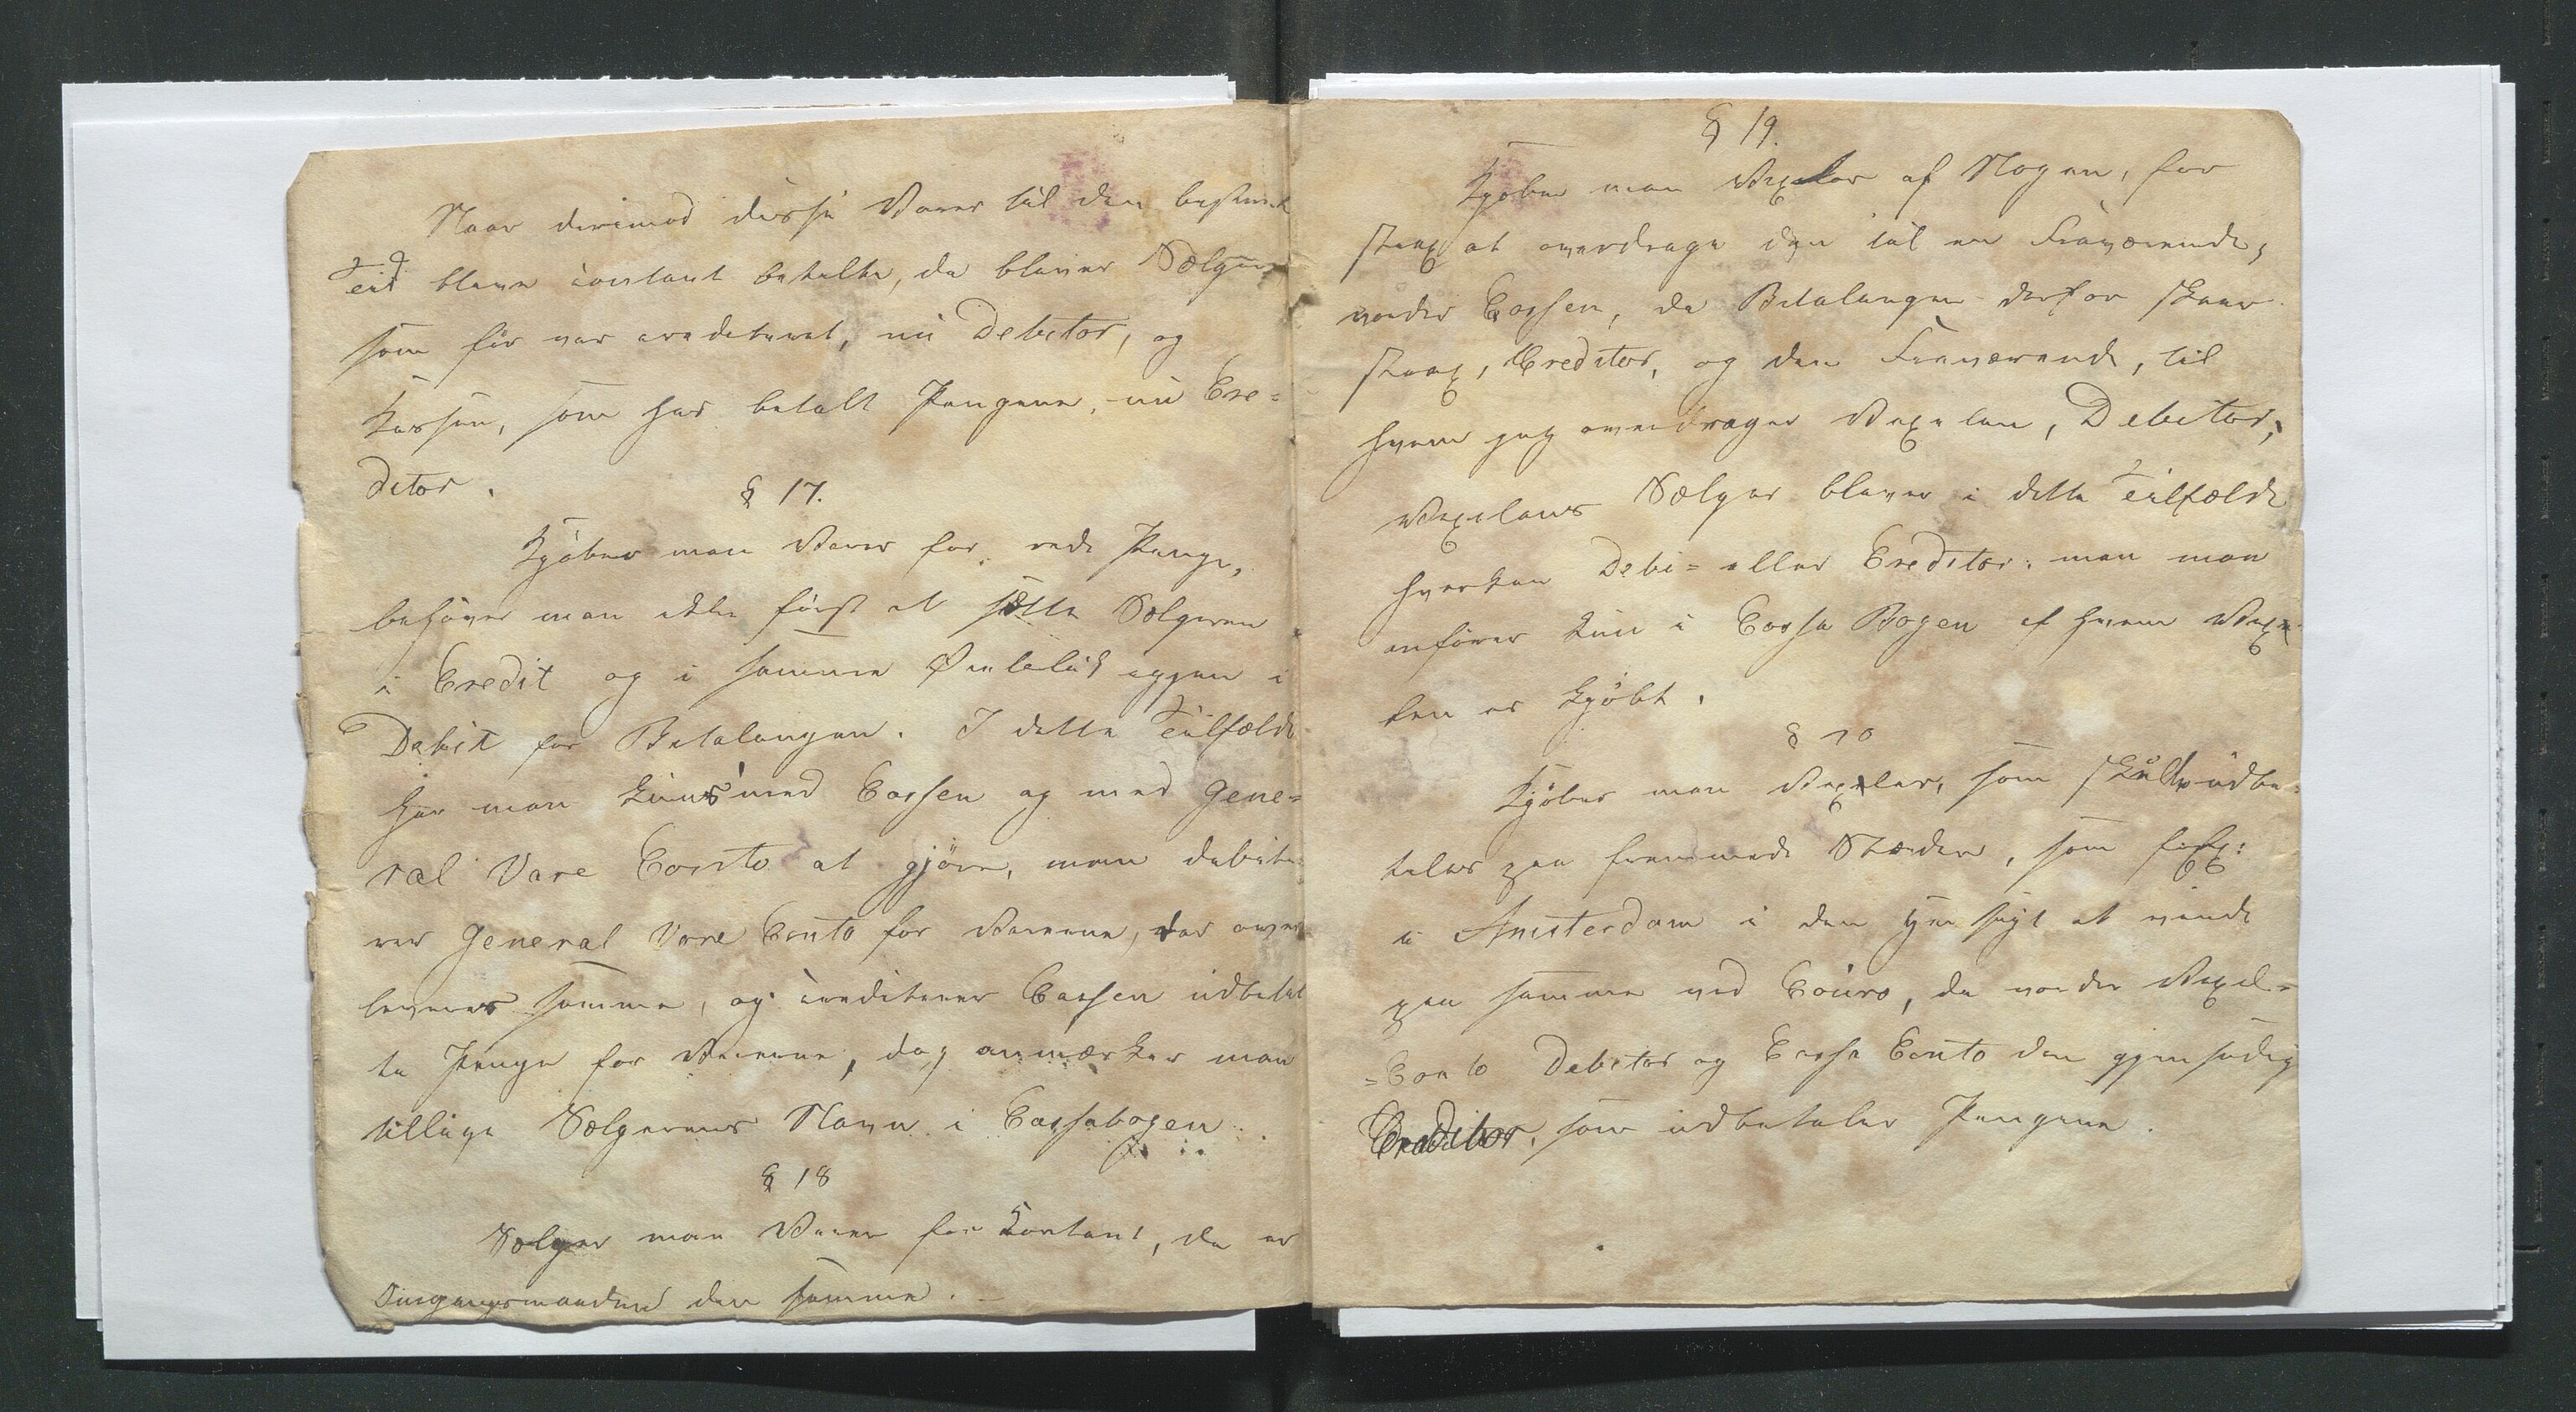 Naar derimod disse Varer til den bestemte
Tid bleve contant betalte, da bliver Sælgeren
som för var crediteret, nu Debitor, og
Kassen, som har betalt Pengene, nu Cre=
ditor.
§ 17.
Kjöber man Varer for rede Penge,
behöver man ikke först at sætte Sælgeren
i Credit og i samme Øieblik igjen i
Debit for Betalingen. I dette Tilfælde
har man kuns med Cassen og med Gene=
ral Vare Conto at gjöre, man debite=
rer General Vare Conto for Varerne, der over
leveres samme, og crediterer Cassen udbetal
te Penge for Varerne, dog anmærker man
tillige Sælgerens Navn i Cassabogen.
§ 18
Sælger man Varer for Kontant, da er
Omgangsmaaden den samme.
§ 19.
Kjöber man Vexler af Nogen, for
strax at overdrage den til en Fraværende,
vorder Cassen, da Betalingen derfor skeer
strax, Creditor, og den Fraværende, til
hvem jeg overdrager Vexelen, Debitor,
Vexelens Sælger bliver i dette Tilfælde
hverken Debi= eller Creditor: men man
anförer kun i Cassa Bogen af hvem Vexe
len er kjöbt.
§ 20
Kjöber man Vexler, som skulle udbe=
tales paa fremmede Stæder, som f. Ex:
i Amsterdam i den Hensigt at vinde
paa samme ved Cours, da vorder Vexel=
=Conto Debitor og Cassa Conto den gjensidig
Creditor, som udbetaler Pengene.